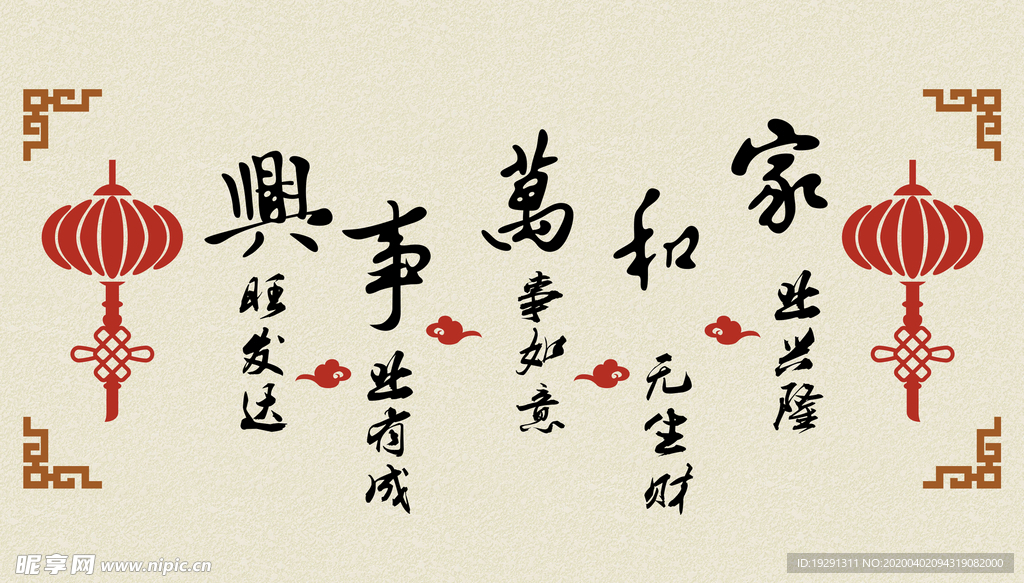 家业兴隆
和气生财
萬事如意
事业有成
興旺发达
昵享网 www.nipic.cn
ID:19291311 NO:20200402094319082000